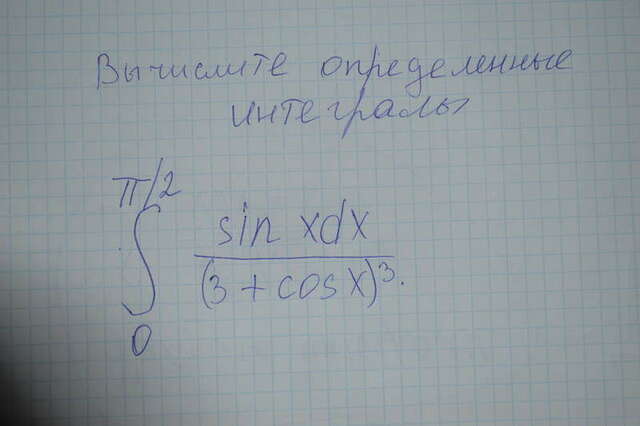 Вычислите определенные
интегралы
π/2
∫ sin xdx
(3 + cos x)³.
0